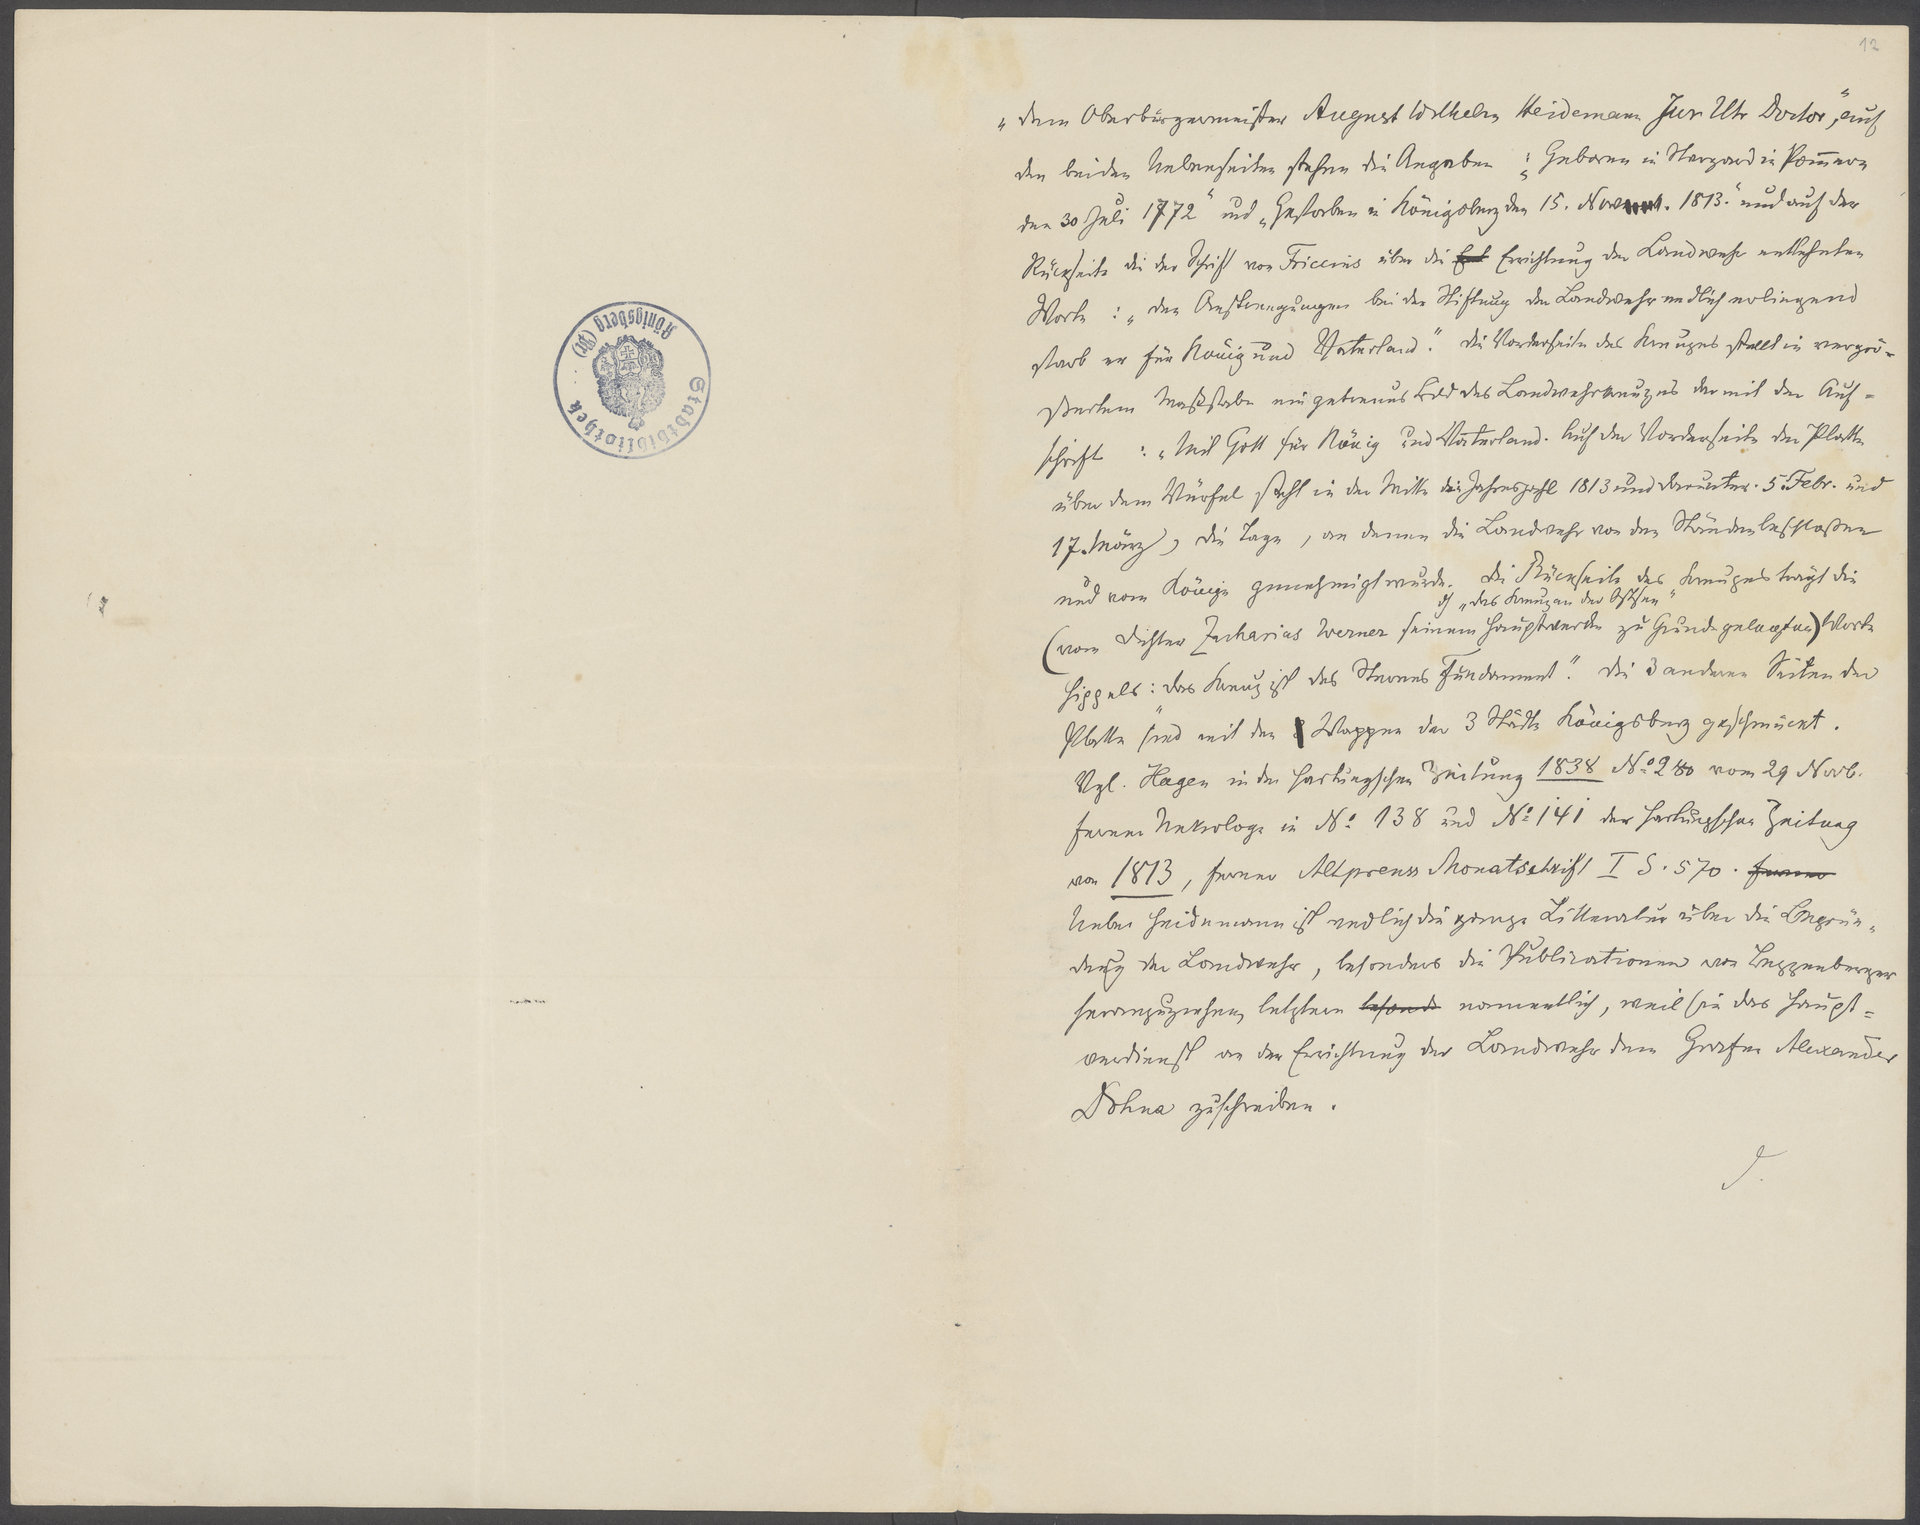 Stadtbibliothek
Königsberg (Pr)
12
„dem Oberbürgermeister August Wilhelm Heidemann Jur. Utr Doctor“, auf
den beiden Nebenseiten stehen die Angaben: „Geboren in Stargard in Pom̄ern
den 30 Juli 1772“ und „Gestorben in Königsberg den 15. Novemt. 1813.“ und auf der
Rückseite die der Schrift von Friccius über die Ent Errichtung der Landwehr entlehnten
Worte: „den Anstrengungen bei der Stiftung der Landwehr redlich erliegend
starb er für König und Vaterland.“ Die Vorderseite des Kreuzes stellt in vergrö-
ßertem Maßstabe ein getreues Bild des Landwehrkreuzes dar mit der Auf=
schrift: „Mit Gott für König und Vaterland. Auf der Vorderseite der Platte
über dem Würfel steht in der Mitte die Jahreszahl 1813 und darunter. 5. Febr. und
17. März, die Tage, an denen die Landwehr von den Ständen beschlossen
und vom Könige genehmigt wurde. Die Rückseite des Kreuzes trägt die
„das Kreuz an der Ostsee“
(vom Dichter Zacharias Werner seinem Hauptwerke zu Grunde gelegten) Worte
Hippels: „das Kreuz ist des Sternes Fundament“. Die 3 anderen Seiten der
Platte sind mit den Wappen der 3 Städte Königsberg geschmückt.
Vgl. Hagen in der Hartungschen Zeitung 1838 No. 280 vom 29 Novb.
ferner Nekrologe in No. 138 und No. 141 der Hartungschen Zeitung
von 1813, ferner Altpreuss Monatschrift I S. 570. ferner
Ueber Heidemann ist endlich die ganze Litteratur über die Begrün-
dung der Landwehr, besonders die Publicationen von Bezzenberger
heranzuziehen, letztere besonde namentlich, weil sie das Haupt=
verdienst an der Errichtung der Landwehr dem Grafen Alexander
Dohna zuschreiben.